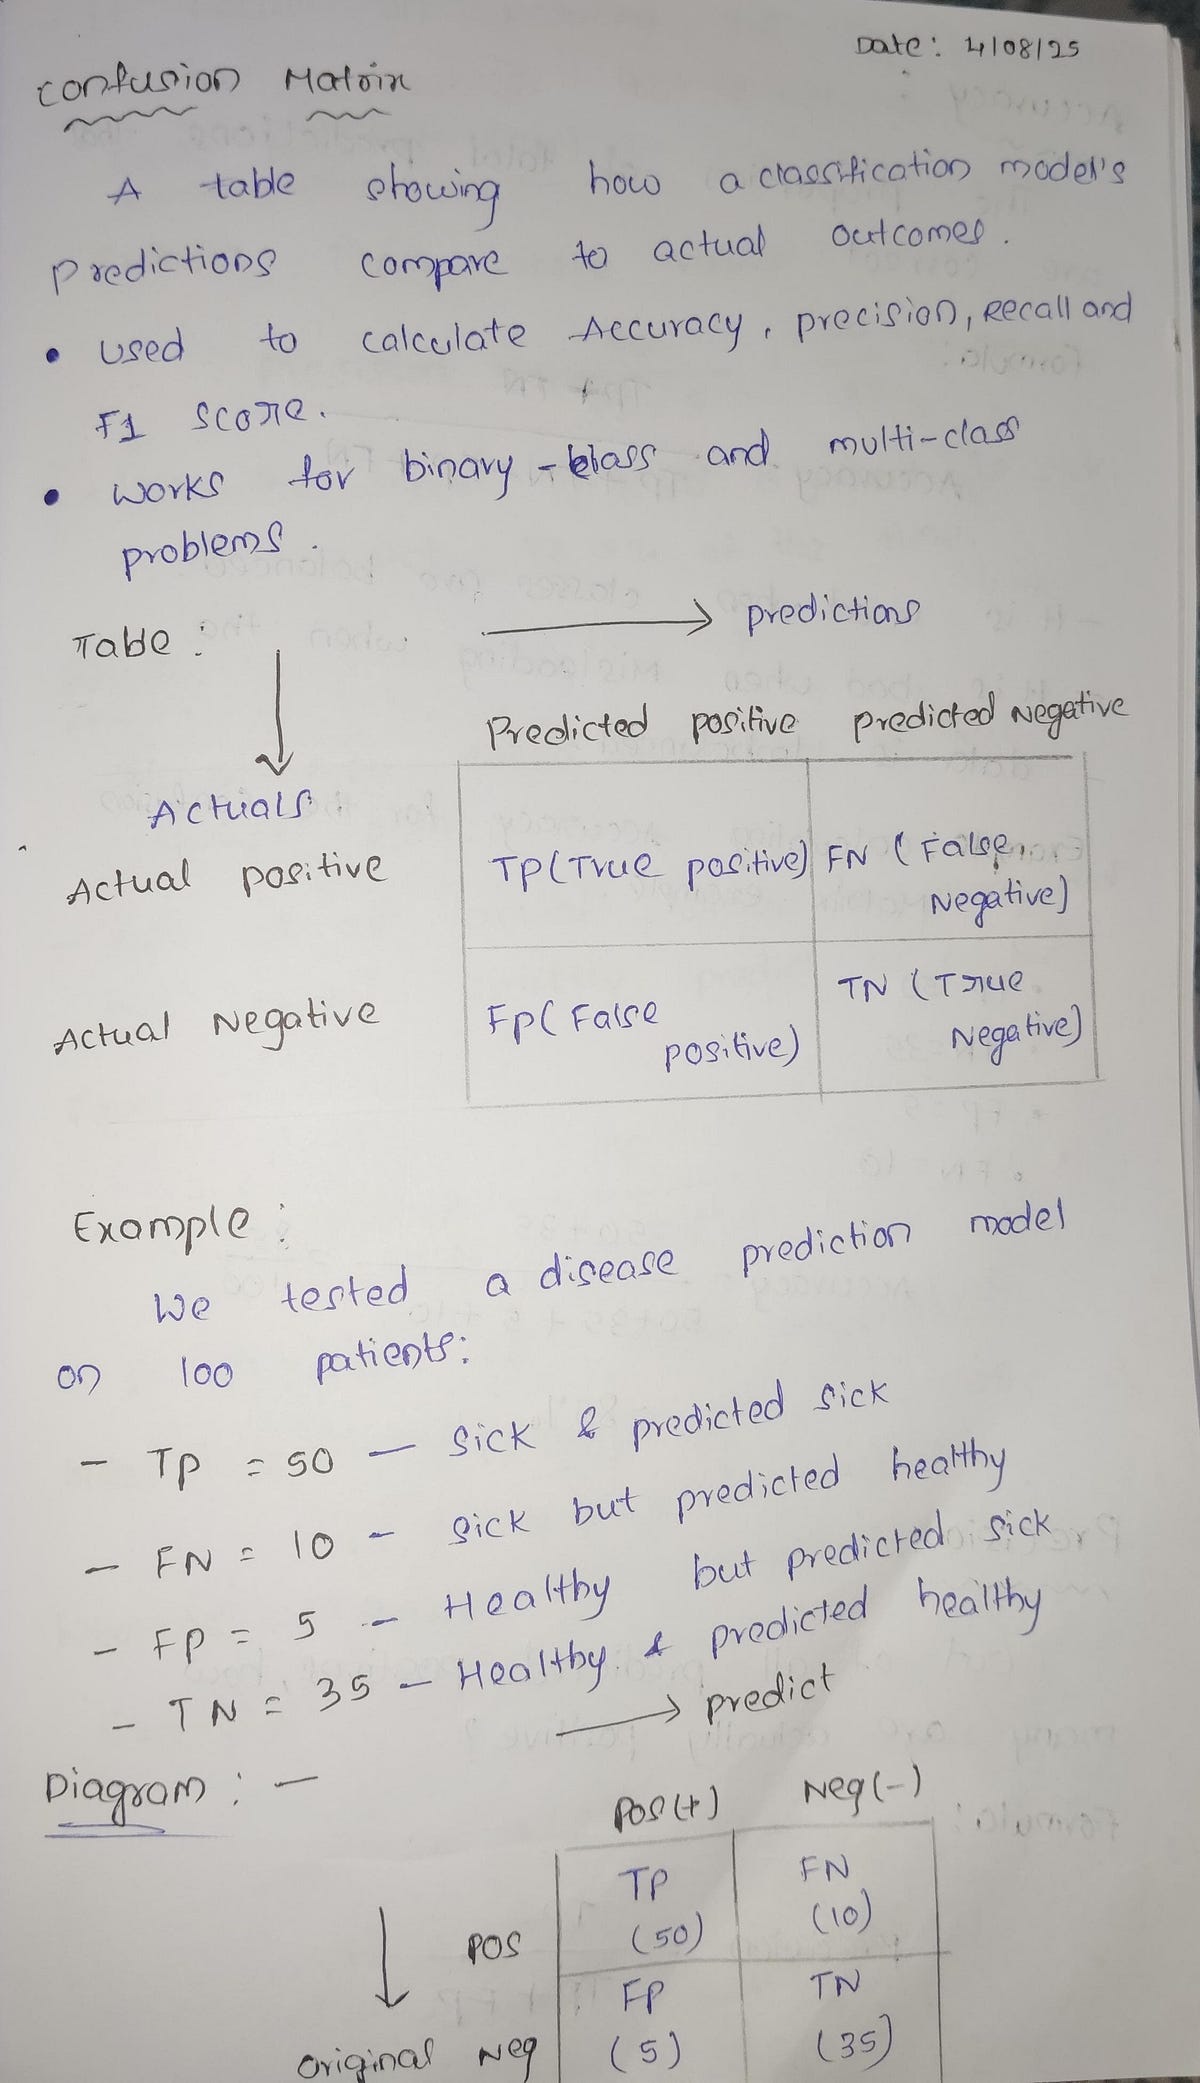 Date: 4/08/25
Confusion Matrix
A table showing how a classification model's
predictions compare to actual outcomes.
• used to calculate Accuracy, precision, Recall and
F1 score.
• works for binary-class and multi-class
problems.
Table:
→ predictions
Predicted positive predicted Negative
Actuals
Actual positive TP(True positive) FN (False
Negative)
Actual Negative FP(False TN (True
positive) Negative)
Example:
We tested a disease prediction model
on 100 patients:
- TP = 50 — Sick & predicted sick
- FN = 10 - sick but predicted healthy
- FP = 5 - Healthy but predicted sick
- TN = 35 - Healthy & predicted healthy
→ predict
Diagram: -
Pos(+) Neg(-)
TP FN
POS (50) (10)
FP TN
original Neg (5) (35)